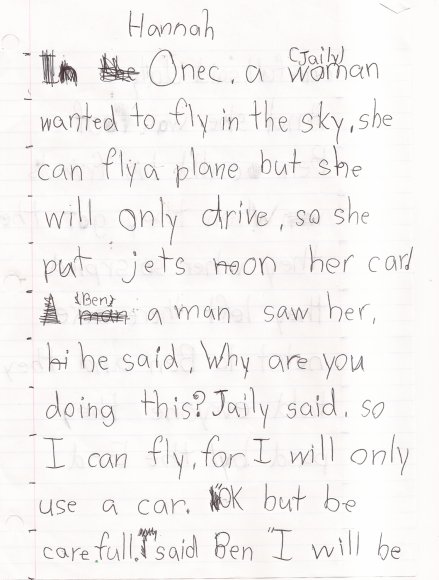 Hannah
In the Onec, a (Jaily) woman
wanted to fly in the sky, she
can fly a plane but she
will only drive, so she
put jets no on her car!
A {Ben} man a man saw her,
hi he said, Why are you
doing this? Jaily said, so
I can fly, for I will only
use a car. "OK but be
carefull." said Ben "I will be